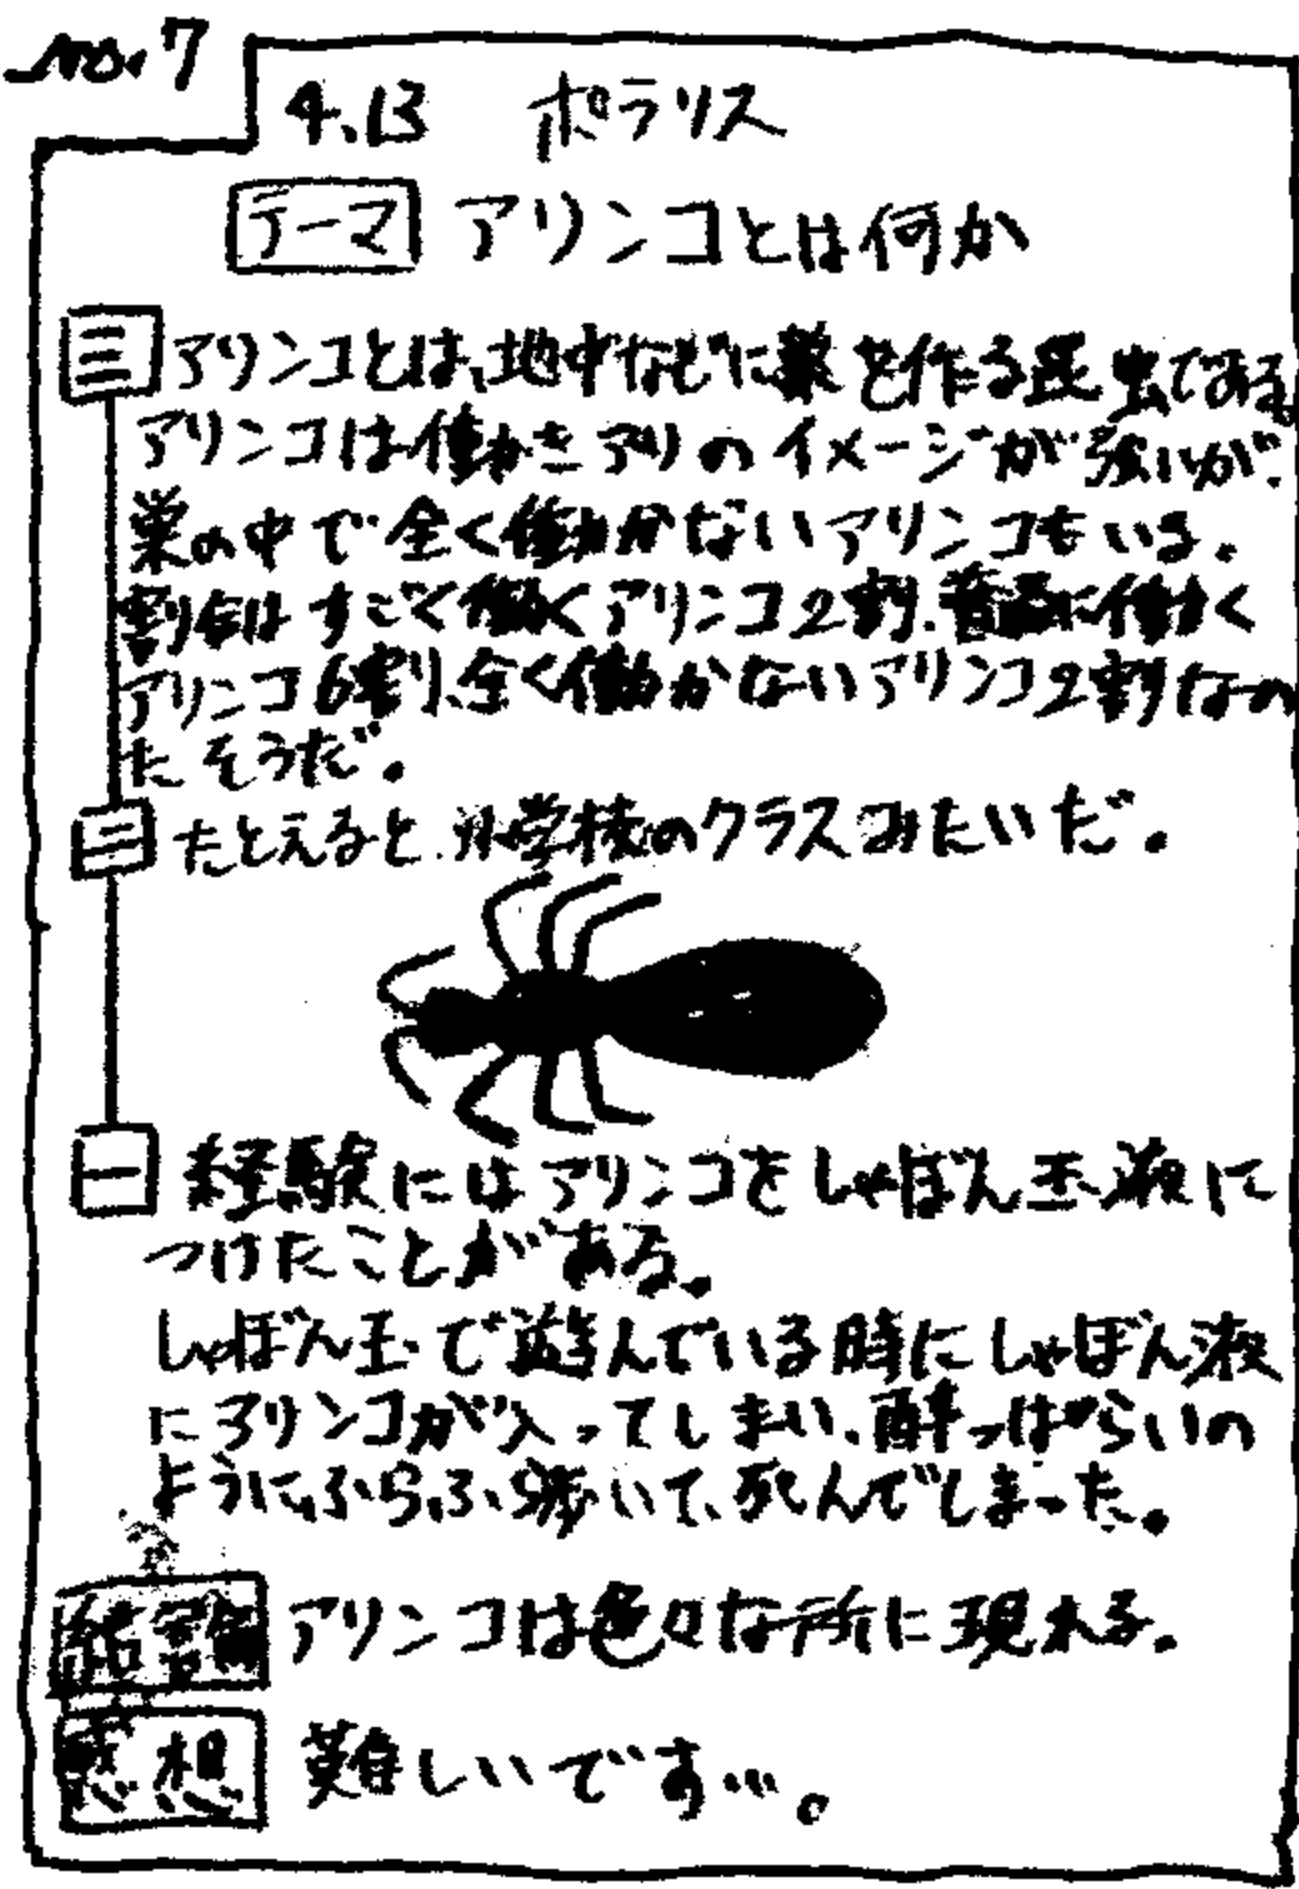 no.7
4.13 ポラリス
テーマ アリンコとは何か
三 アリンコとは、地中などに巣を作る昆虫である。
アリンコは働きアリのイメージが強いが、
巣の中で全く働かないアリンコもいる。
割合はすごく働くアリンコ2割、普通に働く
アリンコ6割、全く働かないアリンコ2割なの
だそうだ。
二 たとえると、小学校のクラスみたいだ。
一 経験にはアリンコをしゃぼん玉液に
つけたことがある。
しゃぼん玉で遊んでいる時にしゃぼん液
にアリンコが入ってしまい、酔っぱらいの
ように、ふらふら歩いて、死んでしまった。
結論 アリンコは色々な所に現れる。
感想 難しいです…。